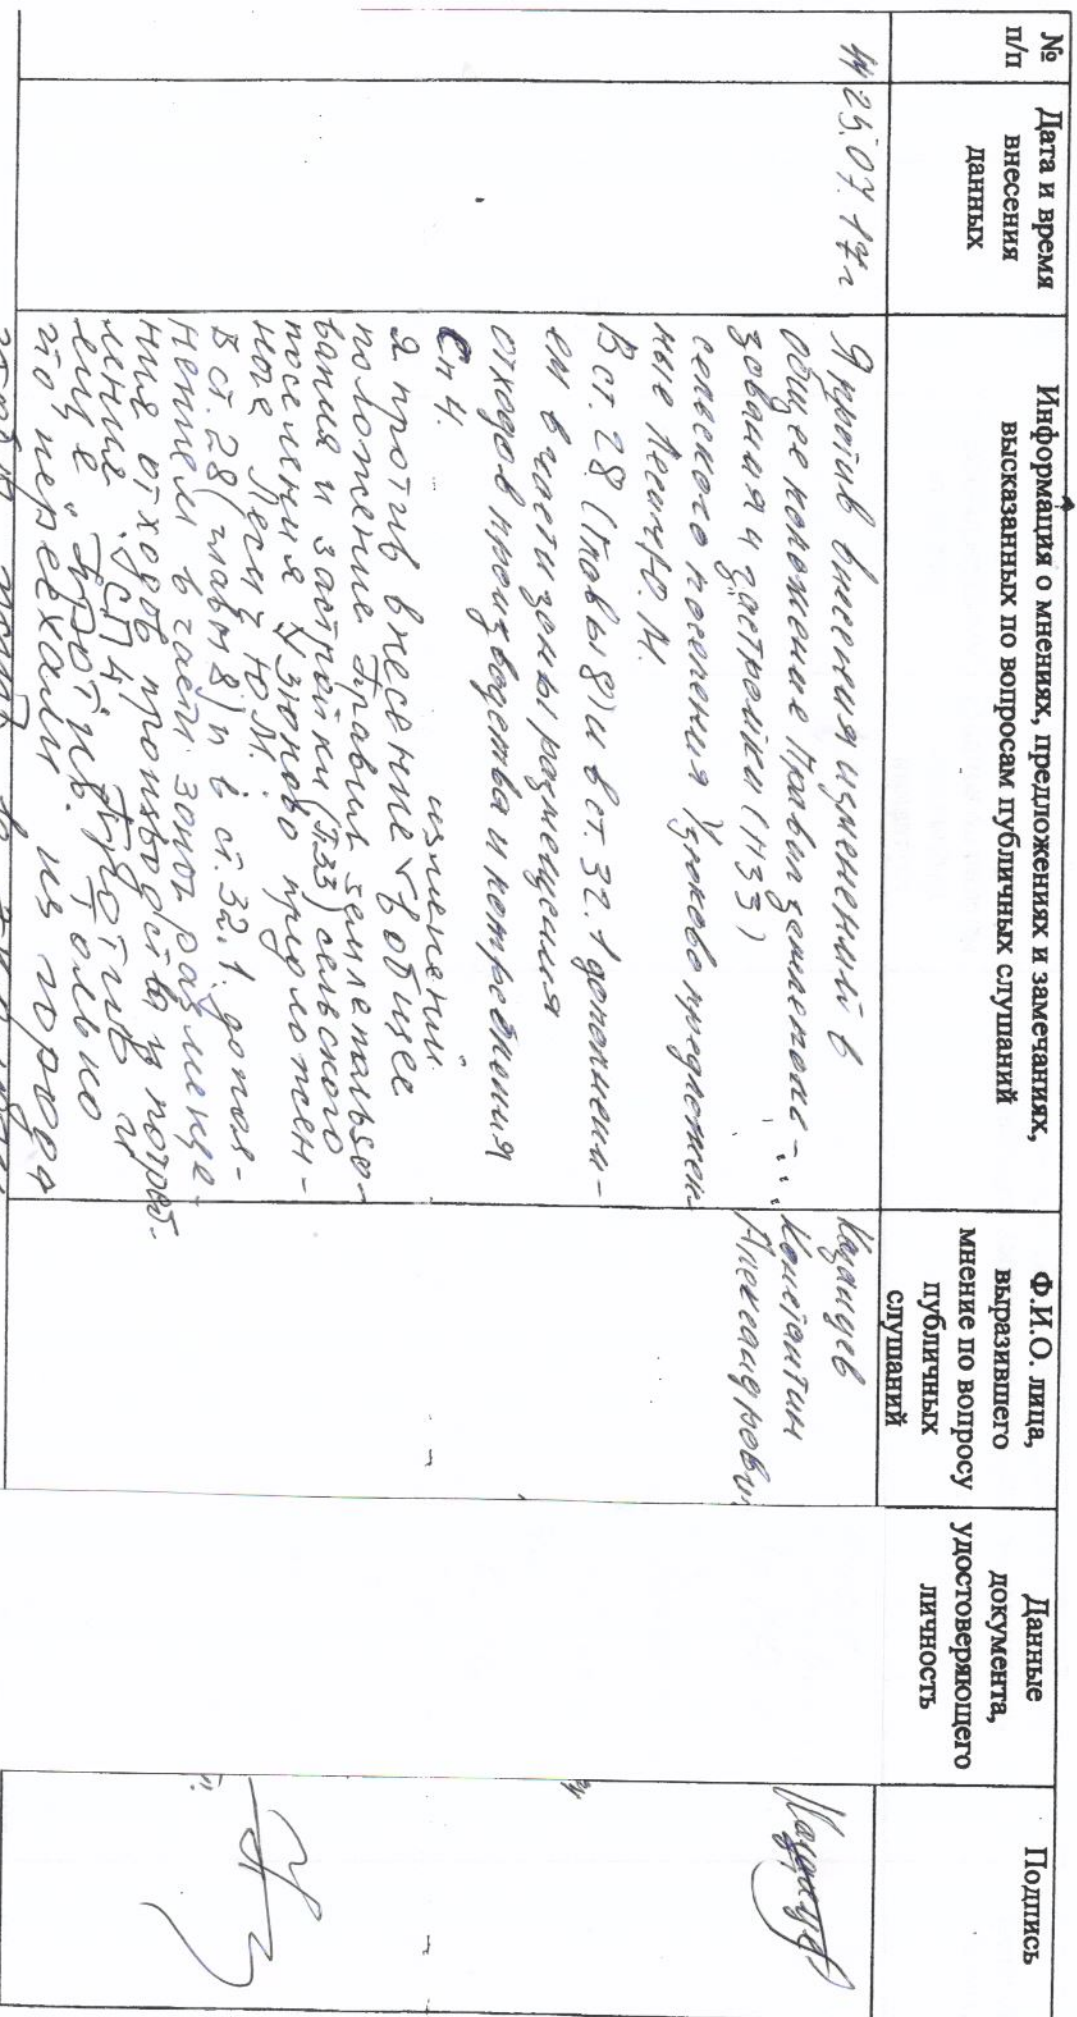 №
п/п
Дата и время
внесения
данных
Информация о мнениях, предложениях и замечаниях,
высказанных по вопросам публичных слушаний
Ф.И.О. лица,
выразившего
мнение по вопросу
публичных
слушаний
Данные
документа,
удостоверяющего
личность
Подпись
25.07.17г
Я против внесения изменений в
общее положение Правил землеполь-
зования и застройки (ПЗЗ)
сельского поселения Узюково предложен
ные Лесич Ю.М.
В ст. 28 (главы 8) и в ст. 32.1 дополнени-
ем в части зоны размещения
отходов производства и потребления
Сп 4.
Казанцев
Константин
Александрович
изменений
Я против внесение в общее
положение Правил землепользо-
вания и застройки (ПЗЗ) сельского
поселения Узюково предложен-
ное Лесич Ю.М.
В ст. 28 (главы 8) и в ст. 32.1. допол-
нением в части зоны размеще-
ния отходов производства и потреб-
ления "СП4" Против и
еще "Против. Только
что переехали из города